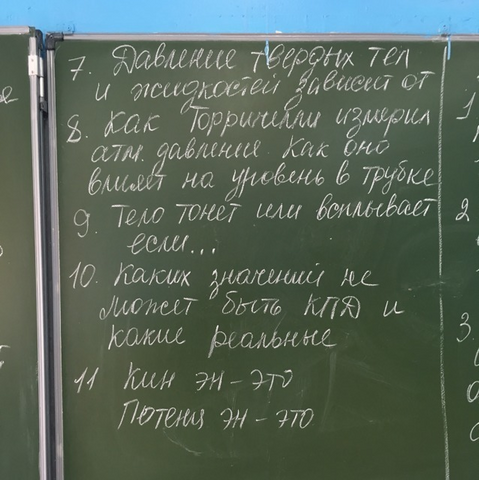 7. Давление твердых тел
и жидкостей зависит от
8. Как Торричелли измерил
атм. давление. Как оно
влияет на уровень в трубке
9. Тело тонет или всплывает
если...
10. Каких значений не
может быть КПД и
какие реальные
11 Кин эн - это
Потенц эн - это
1
2
3.